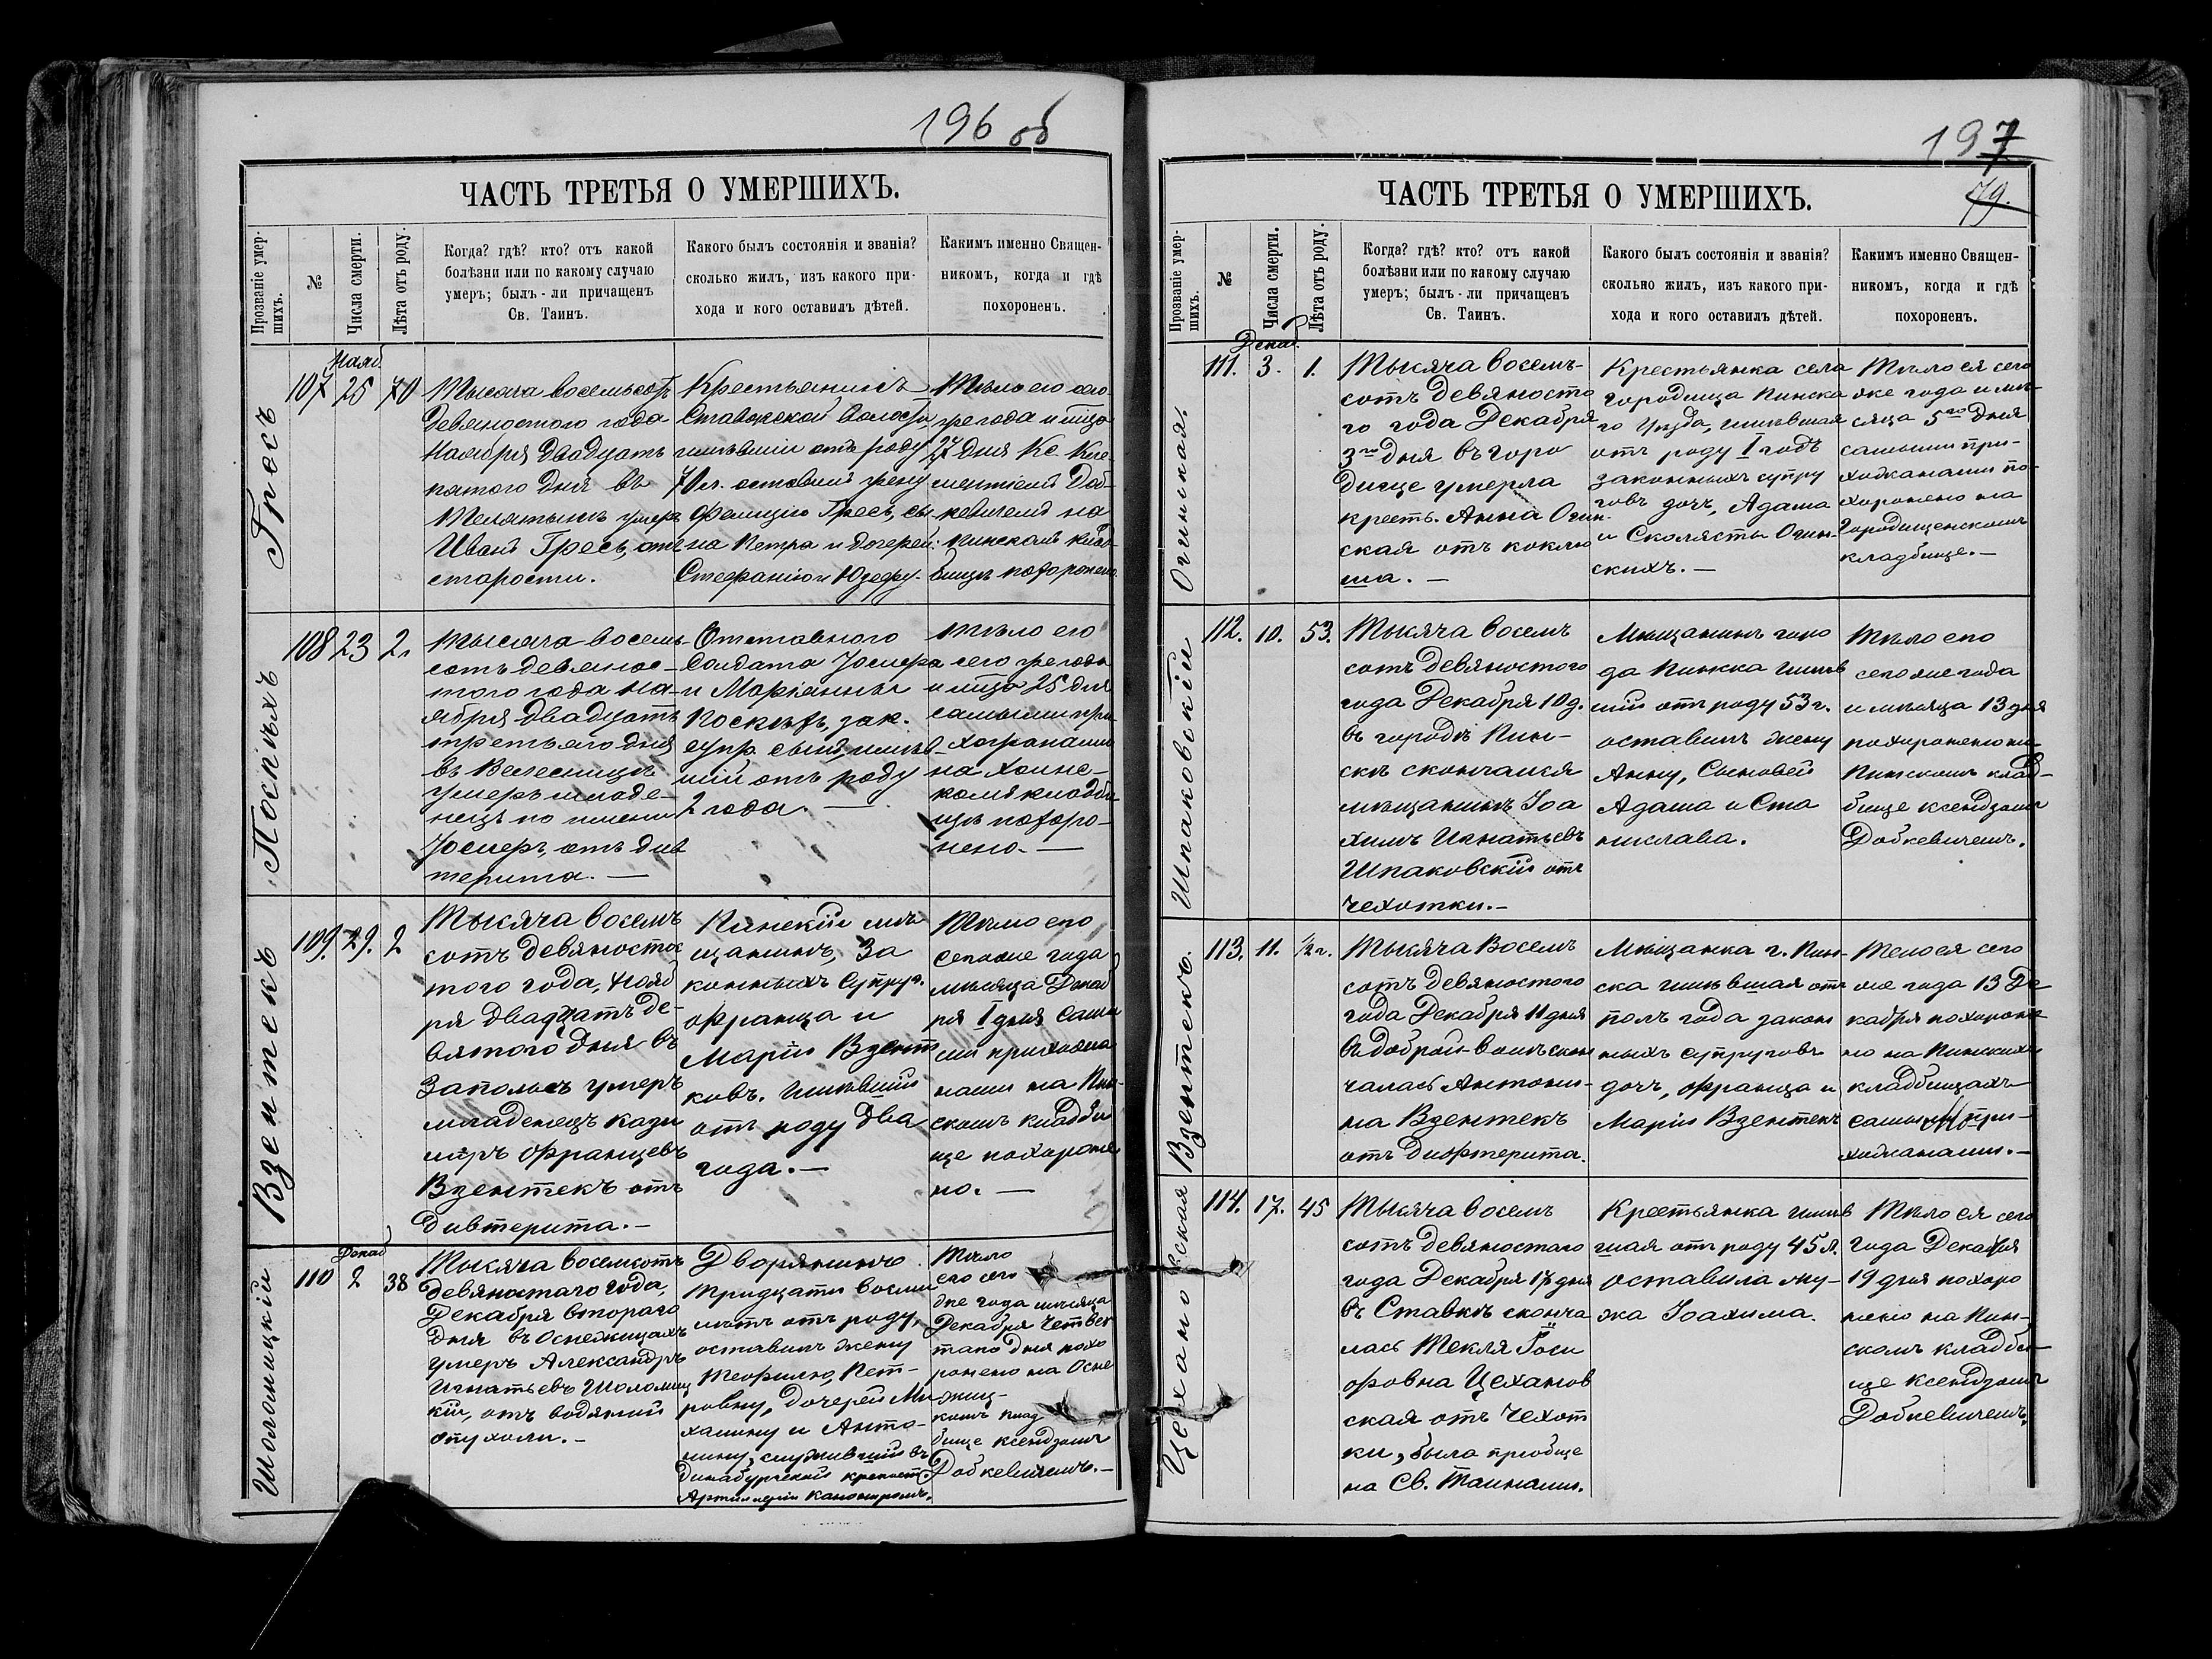 196 об
ЧАСТЬ ТРЕТЬЯ О УМЕРШИХЪ.
Прозваніе умер-
шихъ.
№
Числа смерти.
Лѣта отъ роду.
Когда? гдѣ? кто? отъ какой
болѣзни или по какому случаю
умеръ; былъ-ли причащенъ
Св. Таинъ.
Какого былъ состоянія и званія?
сколько жилъ, изъ какого при-
хода и кого оставилъ дѣтей.
Какимъ именно Священ-
никомъ, когда и гдѣ
похороненъ.
Гресъ
107
Нояб.
25
70
Тысяча восемьсотъ
девяностого года
Ноября двадцать
пятого дня въ
умеръ
Иванъ Гресъ, отъ
старости.
Крестьянинъ
Ставокской волости
имѣвшій отъ роду
70 л. оставилъ жену
Фелицію Гресъ, сы-
на Петра и дочерей:
Стефанію и Юзефу.
Тѣло его сего-
же года и мѣсяца
27 дня Кс. Кле-
ментіемъ Доб-
кевичемъ на
Пинскомъ клад-
бищѣ похоронено.
108
23
2.
Тысяча восемь-
сотъ девянос-
того года На-
ября двадцать
третьяго дня
въ Велесницѣ
умеръ младе-
нецъ по имени
Іосифъ, отъ див
терита. —
Отставного
Солдата Іосифа
и Маріанны
зак.
супр. сынъ, имѣв-
шій отъ роду
2 года. —
Тѣло его
сего же года
и мѣсяца 25 дня
самыми при-
хожанами
на Хоинс-
комъ кладби
щѣ похоро-
нено. —
Взентекъ
109.
29.
2
Тысяча восемь
сотъ девяносто
того года, Нояб
ря двадцать де-
вятого дня въ
Запольѣ умеръ
младенецъ Кази
миръ Францевъ
Взентекъ отъ
дивтерита. —
Пинскій мѣ
щанинъ, За
конныхъ Супруг.
Франца и
Маріи Взенте
ковъ. имѣвшій
отъ роду два
года. —
Тѣло его
сего же года
мѣсяца Декаб
ря 1 дня самы
ми прихожа
нами на Пин-
скомъ кладби
ще похороне
но. —
Шоломицкій
110
Декаб
2
38
Тысяча восемсотъ
девяностаго года,
Декабря второго
дня въ Оснежицахъ
умеръ Александръ
Игнатьевъ Шоломиц
кій, отъ водяной
опухоли. —
Дворянинъ
Тридцати восьми
лѣтъ отъ роду,
оставилъ жену
Теофилію, Пет-
ровну, дочерей Ми
халину и Анто-
нину, служившій въ
Динабургской крѣпост.
Артиллеріи Канониромъ.
Тѣло
его сего
же года мѣсяца
Декабря Четвер
таго дня похо
ронено на Осне
жиц-
комъ клад
бище ксендзомъ
Добкевичемъ. —
197
79.
ЧАСТЬ ТРЕТЬЯ О УМЕРШИХЪ.
Прозваніе умер-
шихъ.
№
Числа смерти.
Лѣта отъ роду.
Когда? гдѣ? кто? отъ какой
болѣзни или по какому случаю
умеръ; былъ-ли причащенъ
Св. Таинъ.
Какого былъ состоянія и званія?
сколько жилъ, изъ какого при-
хода и кого оставилъ дѣтей.
Какимъ именно Священ-
никомъ, когда и гдѣ
похороненъ.
Огинская.
111.
Декаб.
3.
1.
Тысяча восемь-
сотъ девяносто
го года Декабря
3го дня въ Горо
дище умерла
кресть. Анна Огин-
ская отъ коклю
ша. —
Крестьянка села
Городища Пинска
го Уѣзда, имѣвшая
отъ роду 1 годъ
законныхъ супру
говъ дочь, Адама
и Схолясты Огин-
скихъ. —
Тѣло ея сего
же года и мѣ-
сяца 5го дня
самыми при-
хожанами по-
хоронено на
Городищенскомъ
кладбище. —
Шпаковскій
112.
10.
53.
Тысяча восемь
сотъ девяностого
года Декабря 10 д.
въ городѣ Пин-
скѣ скончался
мѣщанинъ Іоа
химъ Игнатьевъ
Шпаковскій отъ
чехотки. —
Мѣщанинъ горо
да Пинска имѣв
шій отъ роду 53 г.
оставилъ жену
Анну, Сыновей
Адама и Ста
нислава.
Тѣло его
сего же года
и мѣсяца 13 дня
похоронено на
Пинскомъ клад-
бище ксендзомъ
Добкевичемъ.
Взентекъ.
113.
11.
1/2 г.
Тысяча Восемь
сотъ девяностого
года Декабря 11 дня
въ Доброй-волѣ скон
чалась Антони-
на Взентекъ
отъ дифтерита.
Мѣщанка г. Пин-
ска имѣвшая отъ
полъ года закон
ныхъ супруговъ
дочь, Франца и
Маріи Взентекъ
Тело ея сего
же года 13 Де
кабря похороне
но на Пинскихъ
кладбищахъ
самыми при-
хожанами. —
Цехановская
114.
17.
45
Тысяча восемь
сотъ девяностаго
года Декабря 17 дня
въ Ставкѣ сконча
лась Текля Іоси
фовна Цеханов
ская отъ Чехот
ки, была пріобще
на Св. Тайнами.
Крестьянка имѣв
шая отъ роду 45 л.
оставила му-
жа Іоахима.
Тѣло ея сего
года Декабря
19 дня похоро
нено на Пин-
скомъ кладби-
ще ксендзомъ
Добкевичемъ.